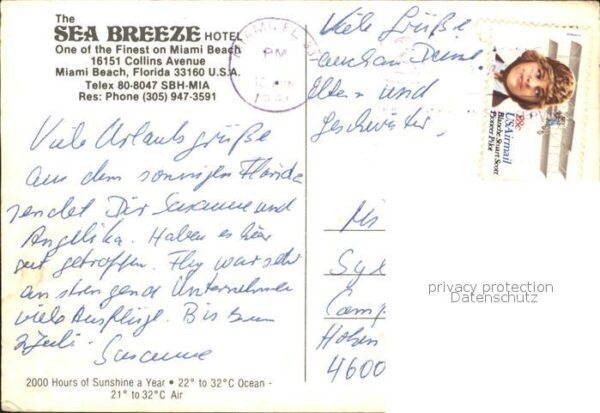 The
SEA BREEZE HOTEL
One of the Finest on Miami Beach
16151 Collins Avenue
Miami Beach, Florida 33160 U.S.A.
Telex 80-8047 SBH-MIA
Res: Phone (305) 947-3591
Viele Urlaubsgrüße
aus dem sonnigen Florida
sendet Dir Susanne und
Angelika. Haben es hier
gut getroffen. Flug war sehr
anstrengend. Unternehmen
viele Ausflüge. Bis zum
Juli.
Susanne
2000 Hours of Sunshine a Year • 22° to 32°C Ocean -
21° to 32°C Air
MIAMI, FL
PM
Viele Grüße
auch an Deine
Eltern und
Geschwister,
USAirmail
Blanche Stuart Scott
Pioneer Pilot
Camp
4600
privacy protection
Datenschutz